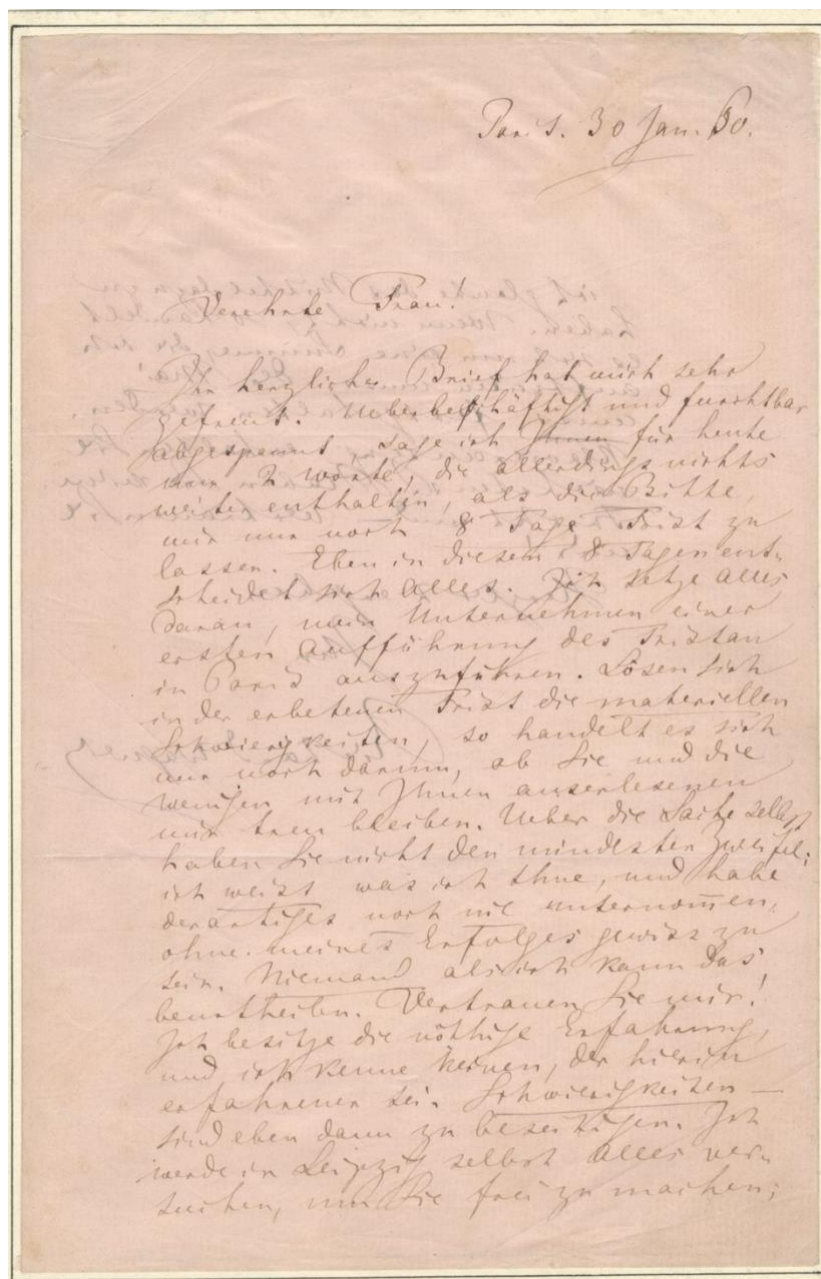 Paris. 30 Jan. 60.
Verehrte Frau!
Ihr herzlicher Brief hat mich sehr
gefreut. Ueberbeschäftigt und furchtbar
abgespannt sage ich Ihnen für heute
nur 2 worte, die allerdings nichts
weiter enthalten, als die Bitte,
mir nur noch 8 Tage Frist zu
lassen. Eben in diesen 8 Tagen ent-
scheidet sich Alles. Ich setze alles
daran, mein Unternehmen einer
ersten Aufführung des Tristan
in Paris auszuführen. Lösen sich
in der erbetenen Frist die materiellen
Schwierigkeiten, so handelt es sich
nur noch darum, ob Sie und die
wenigen mit Ihnen auserlesenen
mir treu bleiben. Ueber die Sache selbst
haben Sie nicht den mindesten Zweifel;
ich weiss was ich thue, und habe
derartiges noch nie unternom̄en,
ohne meines Erfolges gewiss zu
sein. Niemand als ich kann das
beurtheilen. Vertrauen Sie mir!
Ich besitze die nöthige Erfahrung,
und ich kenne keinen, der hierin
erfahrener sei. Schwierigkeiten —
sind eben dann zu beseitigen. Ich
werde in Leipzig selbst alles ver-
suchen, um Sie frei zu machen;